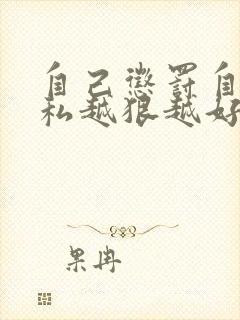 自己惩罚自
私越狠越好
果冉